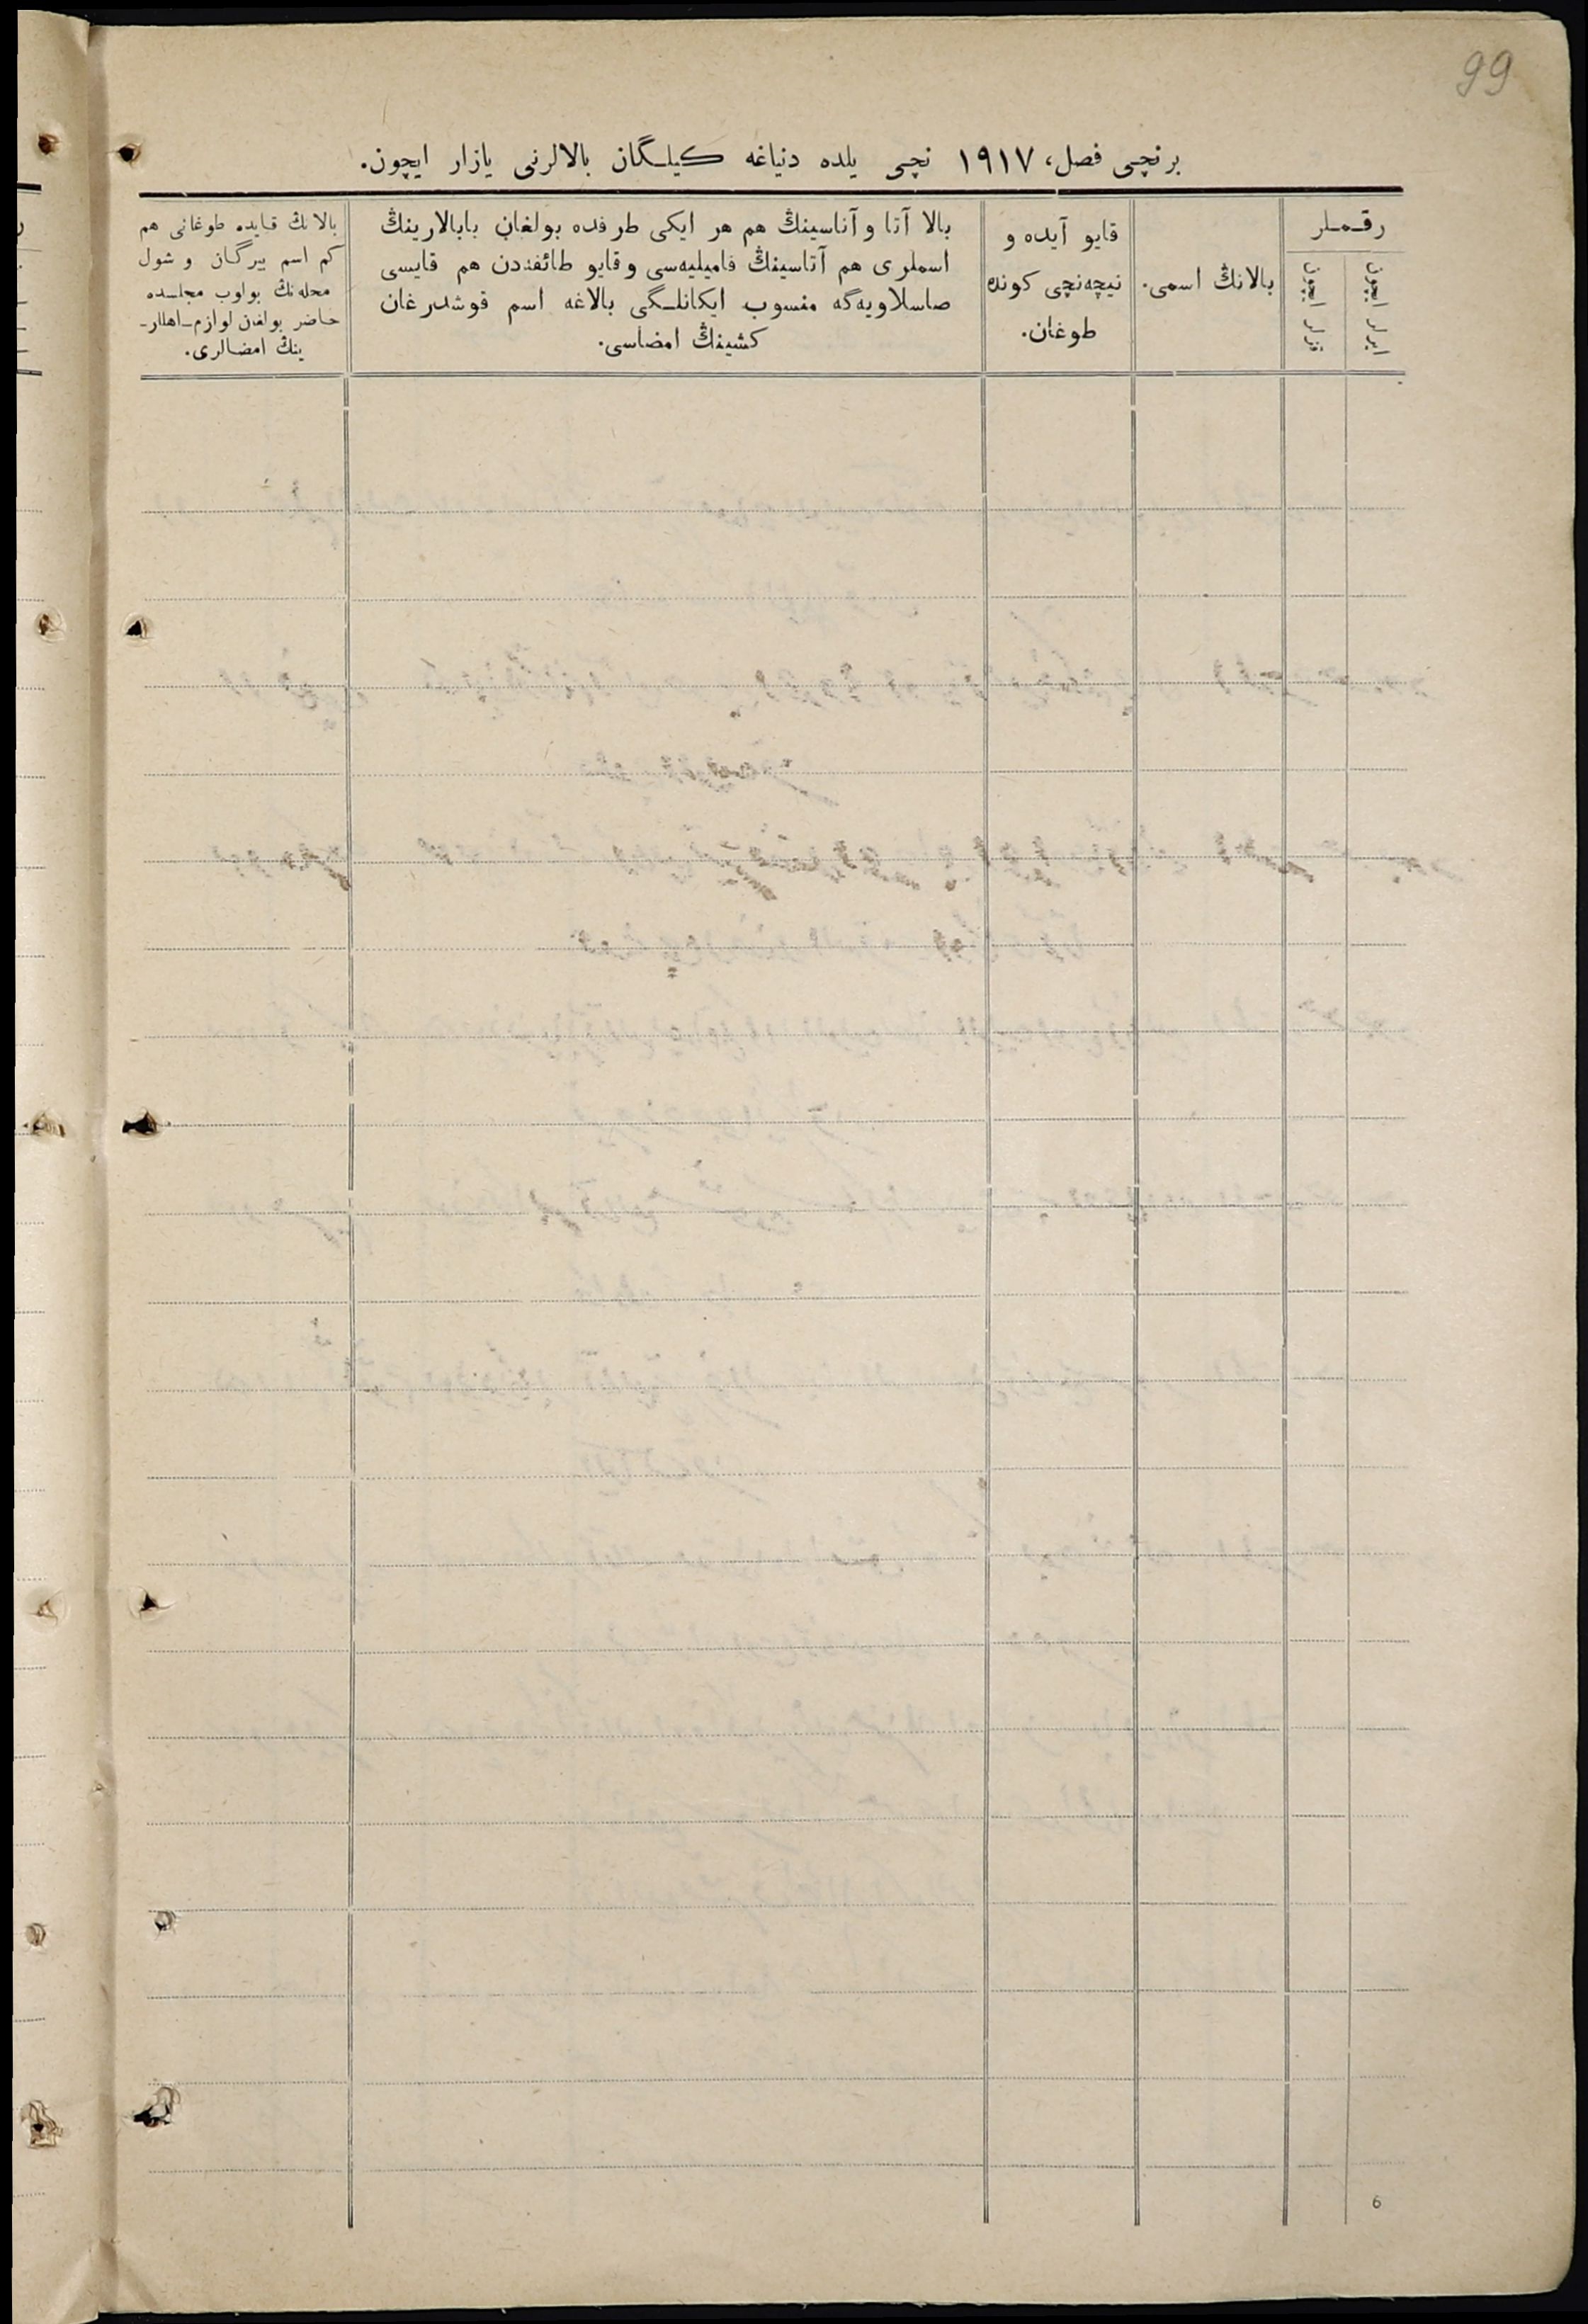 99
برنچی فصل، ١٩١٧ نچی یلده دنیاغه کیلگان بالالرنی یازار ایچون.
رقملر
ایرلر ایچون
قزلر ایچون
بالانڭ اسمی.
قایو آیده و
نیچه‌نچی کونده
طوغان.
بالا آتا و آناسینڭ هم هر ایکی طرفده بولغان بابالارینڭ
اسملری هم آتاسینڭ فامیلیه‌سی و قایو طائفه‌دن هم قایسی
صاسلاویه‌گه منسوب ایکانلگی بالاغه اسم قوشدرغان
کشینڭ امضاسی.
بالانڭ قایده طوغانی هم
کم اسم بیرگان و شول
محله‌نڭ بولوب مجلسده
حاضر بولغان لوازم اهللار-
ینڭ امضالری.
6